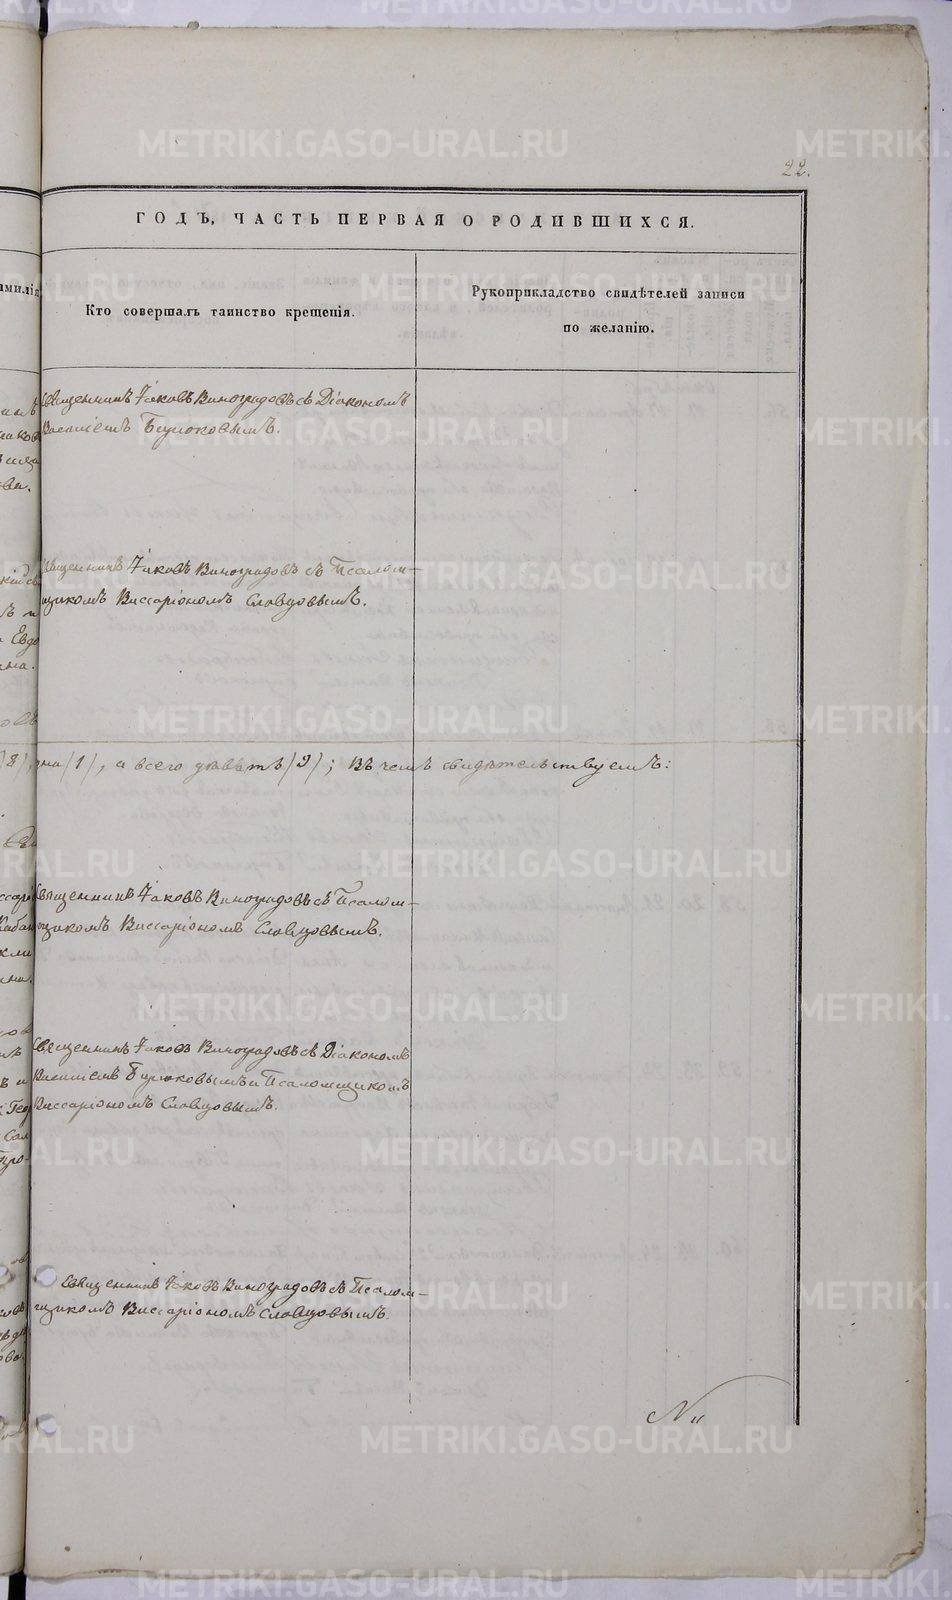 22.
ГОДЪ, ЧАСТЬ ПЕРВАЯ О РОДИВШИХСЯ.
Кто совершалъ таинство крещенія.
Рукоприкладство свидѣтелей записи
по желанію.
Священникъ Іаковъ Виноградовъ съ Діакономъ
Василіемъ Бирюковымъ.
Священникъ Іаковъ Виноградовъ съ Псалом-
щикомъ Виссаріономъ Словцовымъ.
/8/, одна /1/, а всего девять /9/; въ чемъ свидѣтельствуемъ:
Священникъ Іаковъ Виноградовъ съ Псалом-
щикомъ Виссаріономъ Словцовымъ.
Священникъ Іаковъ Виноградовъ съ Діакономъ
Василіемъ Бирюковымъ и Псаломщикомъ
Виссаріономъ Словцовымъ.
Священникъ Іаковъ Виноградовъ съ Псалом-
щикомъ Виссаріономъ Словцовымъ.
METRIKI.GASO-URAL.RU